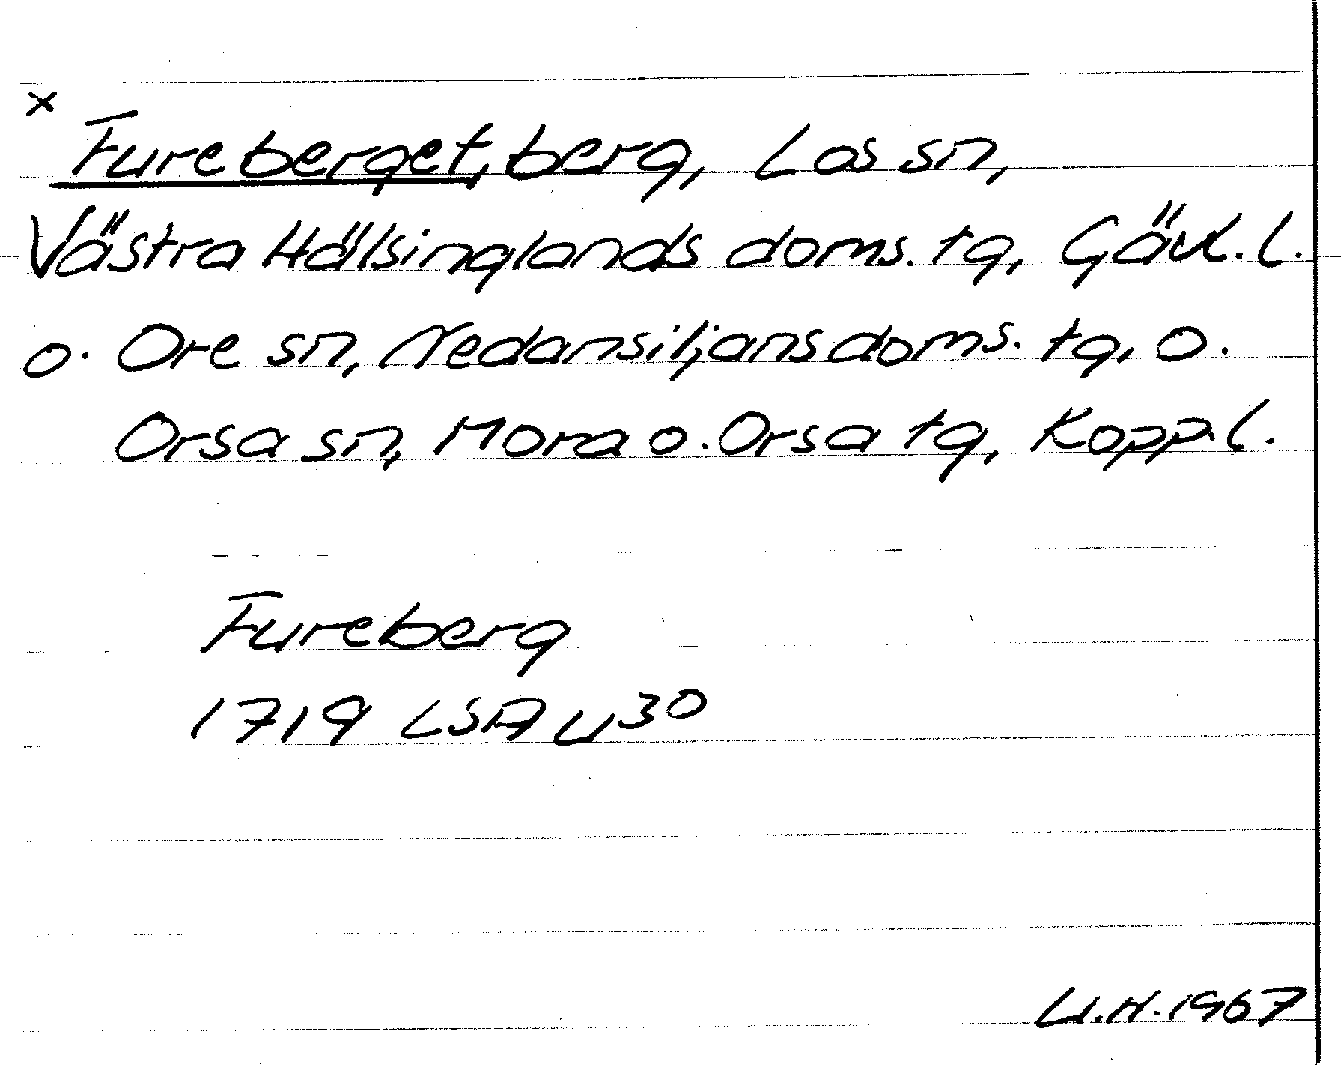 x
Fureberget, berg, Los sn,
Västra Hälsinglands doms. tg, Gävl. l.
o. Ore sn, Nedansiljans doms. tg, o.
Orsa sn, Mora o. Orsa tg, Kopp. l.
Fureberg
1719 LSA U 30
U.H. 1967